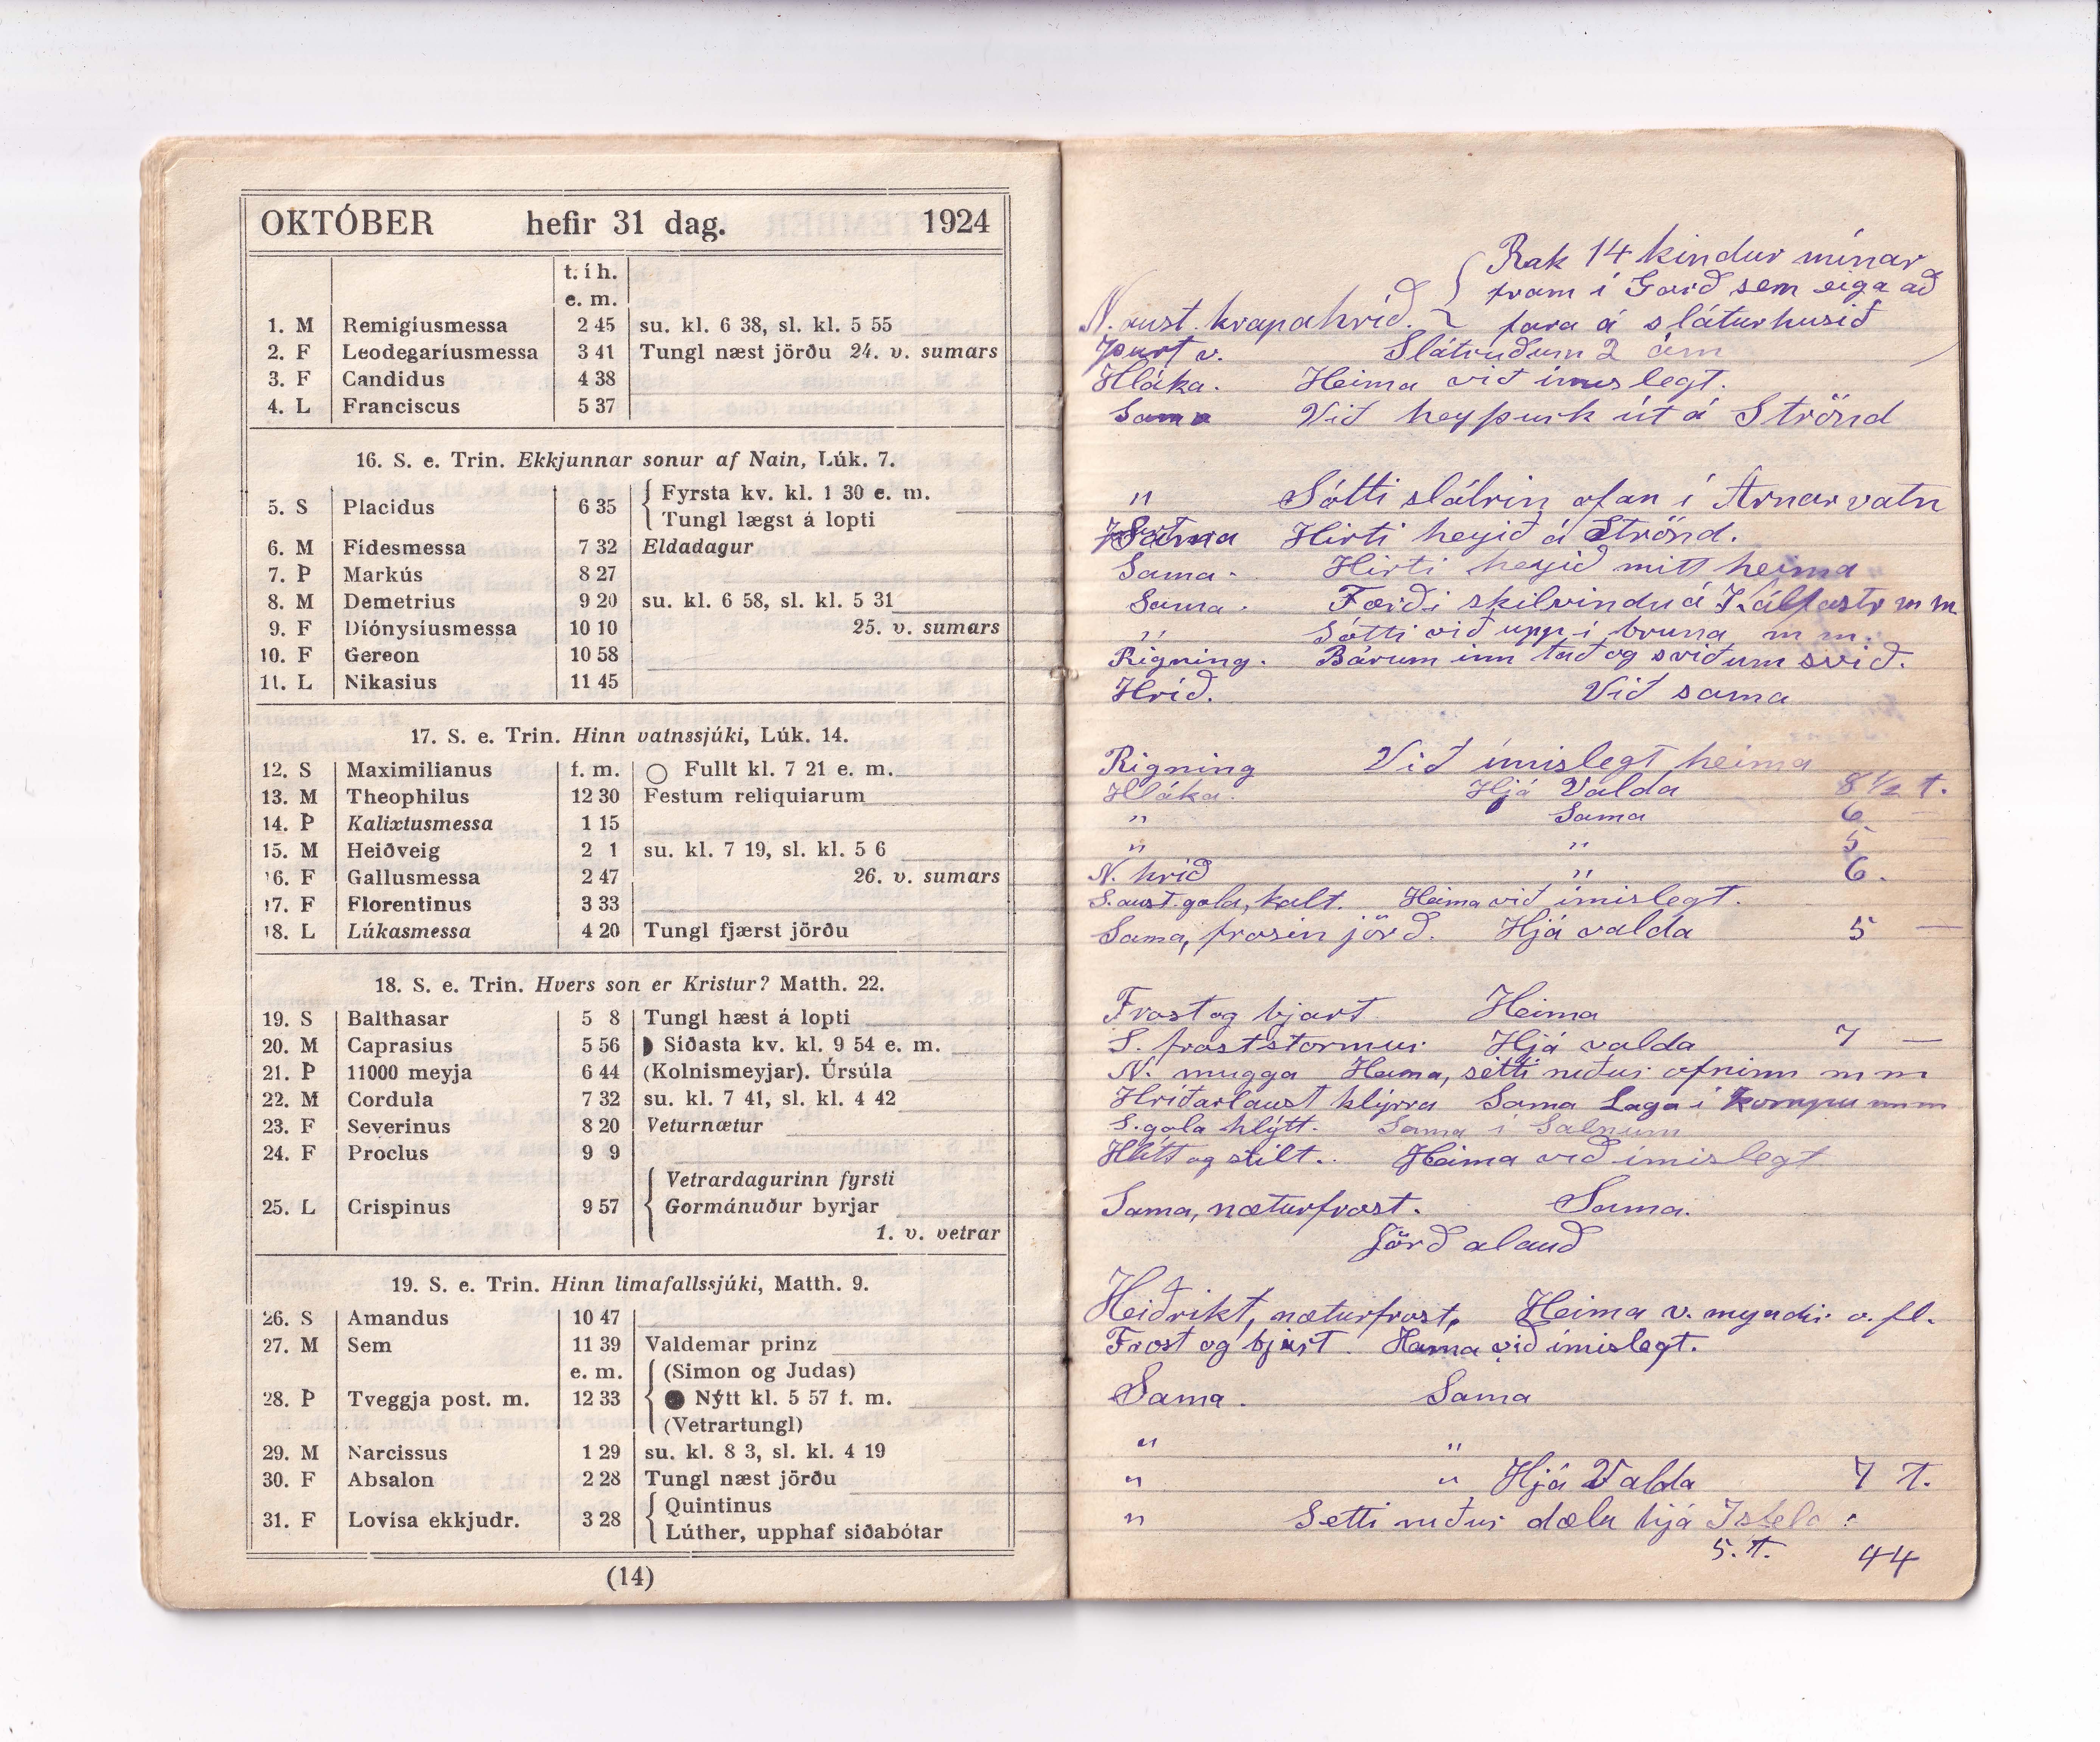 OKTÓBER hefir 31 dag. 1924
t. í h.
e. m.
1. M Remigíusmessa 2 45 su. kl. 6 38, sl. kl. 5 55
2. F Leodegaríusmessa 3 41 Tungl næst jörðu 24. v. sumars
3. F Candidus 4 38
4. L Franciscus 5 37
16. S. e. Trin. Ekkjunnar sonur af Nain, Lúk. 7.
5. S Placidus 6 35 Fyrsta kv. kl. 1 30 e. m.
Tungl lægst á lopti
6. M Fídesmessa 7 32 Eldadagur
7. Þ Markús 8 27
8. M Demetrius 9 20 su. kl. 6 58, sl. kl. 5 31
9. F Díónysíusmessa 10 10 25. v. sumars
10. F Gereon 10 58
11. L Nikasius 11 45
17. S. e. Trin. Hinn vatnssjúki, Lúk. 14.
12. S Maximilianus f. m. Fullt kl. 7 21 e. m.
13. M Theophilus 12 30 Festum reliquiarum
14. Þ Kalixtusmessa 1 15
15. M Heiðveig 2 1 su. kl. 7 19, sl. kl. 5 6
16. F Gallusmessa 2 47 26. v. sumars
17. F Florentinus 3 33
18. L Lúkasmessa 4 20 Tungl fjærst jörðu
18. S. e. Trin. Hvers son er Kristur? Matth. 22.
19. S Balthasar 5 8 Tungl hæst á lopti
20. M Caprasius 5 56 Síðasta kv. kl. 9 54 e. m.
21. Þ 11000 meyja 6 44 (Kolnismeyjar). Úrsúla
22. M Cordula 7 32 su. kl. 7 41, sl. kl. 4 42
23. F Severinus 8 20 Veturnætur
24. F Proclus 9 9
Vetrardagurinn fyrsti
25. L Crispinus 9 57 Gormánuður byrjar
1. v. vetrar
19. S. e. Trin. Hinn limafallssjúki, Matth. 9.
26. S Amandus 10 47
27. M Sem 11 39 Valdemar prinz
e. m. (Simon og Judas)
28. Þ Tveggja post. m. 12 33 Nýtt kl. 5 57 f. m.
(Vetrartungl)
29. M Narcissus 1 29 su. kl. 8 3, sl. kl. 4 19
30. F Absalon 2 28 Tungl næst jörðu
31. F Lovísa ekkjudr. 3 28 Quintinus
Lúther, upphaf siðabótar
(14)
Rak 14 kindur mínar
fram í Garð sem eiga að
N. aust. krapahríð. fara á sláturhusið
Þurt v. Slátruðum 2 ám
Hláka. Heima við ímislegt.
Sama Við heyþurk út á Strönd
" Sótti slátrin ofan í Arnarvatn
Sama Hirti heyið á Strönd.
Sama. Hirti heyið mitt heima
Sama. Færði skilvindu á Kálfastr m m
" Sótti við upp í bruna m m.
Rigning. Bárum inn tað og sviðum svið.
Hríð. Við sama
Rigning Við ímislegt heima
Hláka. Hjá Valda 8 1/2 t.
" Sama 6 —
" " 5
N. hríð " 6.
S. aust. gola, kalt. Heima við ímislegt.
Sama, frosin jörð. Hjá valda 5 —
Frost og bjart Heima
S. froststormur Hjá valda 7 —
N. mugga Heima, setti niður ofninn m m
Hríðarlaust hlýrra Sama Laga í Kompu m m
S. gola hlýtt. Sama í Salnum
Hlítt og stilt. Heima við ímislegt
Sama, næturfrost. Sama.
Jörð alauð
Heiðrikt, næturfrost. Heima v. myndir o. fl.
Frost og bjart. Heima við ímislegt.
Sama. Sama
" "
" " Hjá Valda 7 t.
" Setti niður dælu hjá
5. t. 44